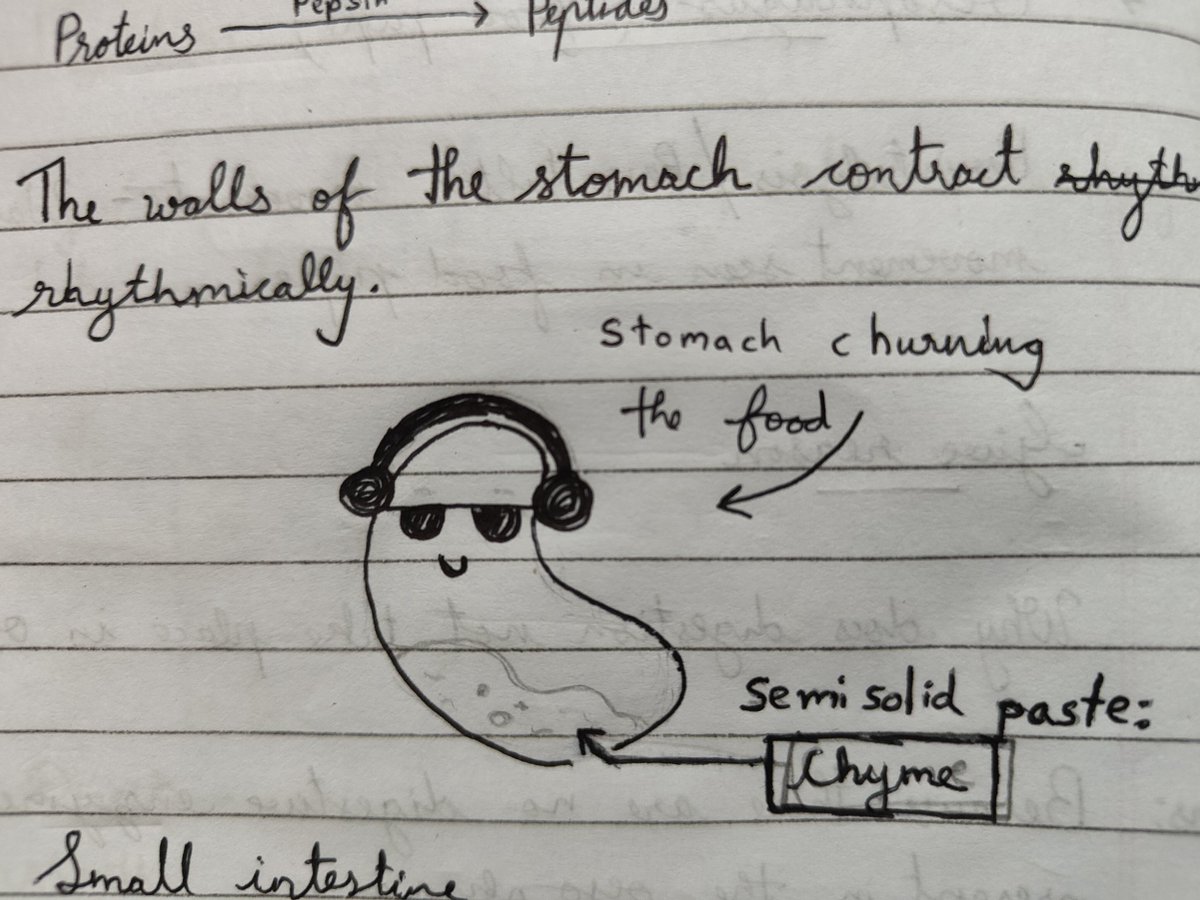 Pepsin
Proteins → Peptides
The walls of the stomach contract rhyth
rhythmically.
Stomach churning
the food
Semisolid paste:
Chyme
Small intestine